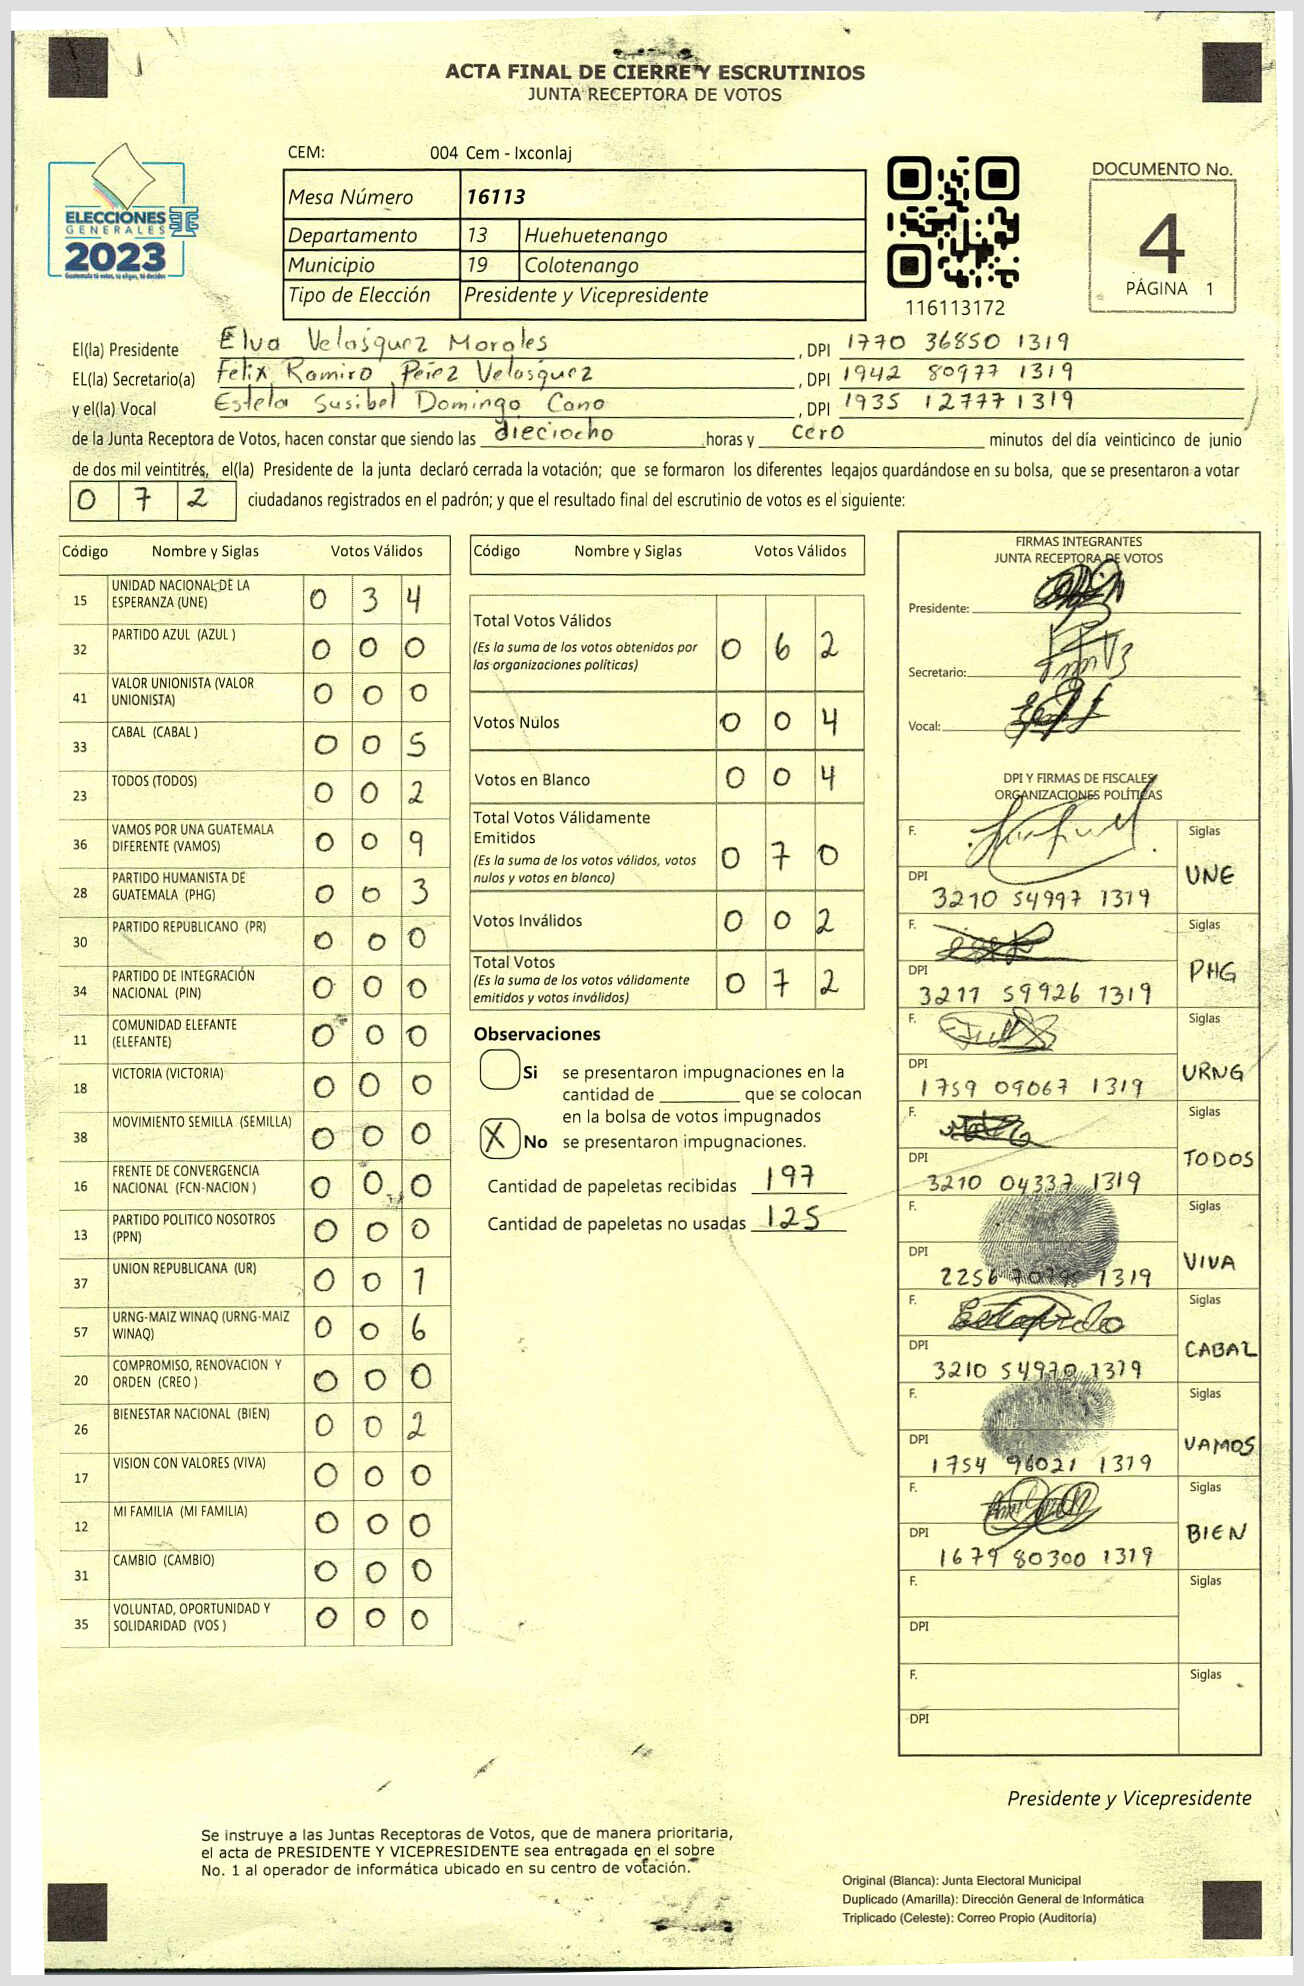 ACTA FINAL DE CIERRE Y ESCRUTINIOS
JUNTA RECEPTORA DE VOTOS
CEM: 004 Cem - Ixconlaj
ELECCIONES
GENERALES
2023
Mesa Número 16113
Departamento 13 Huehuetenango
Municipio 19 Colotenango
Tipo de Elección Presidente y Vicepresidente
116113172
DOCUMENTO No.
4
PÁGINA 1
El(la) Presidente Elva Velasquez Morales , DPI 1770 36850 1319
EL(la) Secretario(a) Felix Ramiro Perez Velasquez , DPI 1942 80977 1319
y el(la) Vocal Estela Susibel Domingo Cano , DPI 1935 12777 1319
de la Junta Receptora de Votos, hacen constar que siendo las dieciocho horas y cero minutos del día veinticinco de junio
de dos mil veintitrés, el(la) Presidente de la junta declaró cerrada la votación; que se formaron los diferentes legajos guardándose en su bolsa, que se presentaron a votar
0 7 2 ciudadanos registrados en el padrón; y que el resultado final del escrutinio de votos es el siguiente:
Código Nombre y Siglas Votos Válidos
15 UNIDAD NACIONAL DE LA ESPERANZA (UNE) 0 3 4
32 PARTIDO AZUL (AZUL ) 0 0 0
41 VALOR UNIONISTA (VALOR UNIONISTA) 0 0 0
33 CABAL (CABAL ) 0 0 5
23 TODOS (TODOS) 0 0 2
36 VAMOS POR UNA GUATEMALA DIFERENTE (VAMOS) 0 0 9
28 PARTIDO HUMANISTA DE GUATEMALA (PHG) 0 0 3
30 PARTIDO REPUBLICANO (PR) 0 0 0
34 PARTIDO DE INTEGRACIÓN NACIONAL (PIN) 0 0 0
11 COMUNIDAD ELEFANTE (ELEFANTE) 0 0 0
18 VICTORIA (VICTORIA) 0 0 0
38 MOVIMIENTO SEMILLA (SEMILLA) 0 0 0
16 FRENTE DE CONVERGENCIA NACIONAL (FCN-NACION ) 0 0 0
13 PARTIDO POLITICO NOSOTROS (PPN) 0 0 0
37 UNION REPUBLICANA (UR) 0 0 1
57 URNG-MAIZ WINAQ (URNG-MAIZ WINAQ) 0 0 6
20 COMPROMISO, RENOVACION Y ORDEN (CREO ) 0 0 0
26 BIENESTAR NACIONAL (BIEN) 0 0 2
17 VISION CON VALORES (VIVA) 0 0 0
12 MI FAMILIA (MI FAMILIA) 0 0 0
31 CAMBIO (CAMBIO) 0 0 0
35 VOLUNTAD, OPORTUNIDAD Y SOLIDARIDAD (VOS ) 0 0 0
Código Nombre y Siglas Votos Válidos
Total Votos Válidos 0 6 2
(Es la suma de los votos obtenidos por
las organizaciones políticas)
Votos Nulos 0 0 4
Votos en Blanco 0 0 4
Total Votos Válidamente
Emitidos 0 7 0
(Es la suma de los votos válidos, votos
nulos y votos en blanco)
Votos Inválidos 0 0 2
Total Votos 0 7 2
(Es la suma de los votos válidamente
emitidos y votos inválidos)
Observaciones
Si se presentaron impugnaciones en la
cantidad de ________ que se colocan
en la bolsa de votos impugnados
X No se presentaron impugnaciones.
Cantidad de papeletas recibidas 197
Cantidad de papeletas no usadas 125
FIRMAS INTEGRANTES
JUNTA RECEPTORA DE VOTOS
Presidente:
Secretario:
Vocal:
DPI Y FIRMAS DE FISCALES
ORGANIZACIONES POLÍTICAS
F. Siglas
DPI 3210 54997 1319 UNE
F. Siglas
DPI 3217 59926 1319 PHG
F. Siglas
DPI 1759 09067 1319 URNG
F. Siglas
DPI 3210 04337 1319 TODOS
F. Siglas
DPI 2256 1319 VIVA
F. Siglas
DPI 3210 54970 1319 CABAL
F. Siglas
DPI 1754 96021 1319 VAMOS
F. Siglas
DPI 1679 80300 1319 BIEN
F. Siglas
DPI
F. Siglas
DPI
Presidente y Vicepresidente
Se instruye a las Juntas Receptoras de Votos, que de manera prioritaria,
el acta de PRESIDENTE Y VICEPRESIDENTE sea entregada en el sobre
No. 1 al operador de informática ubicado en su centro de votación.
Original (Blanca): Junta Electoral Municipal
Duplicado (Amarilla): Dirección General de Informática
Triplicado (Celeste): Correo Propio (Auditoría)